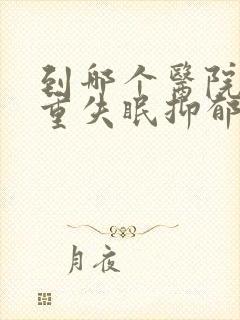 到哪个醫院
重失眠抑郁
月夜